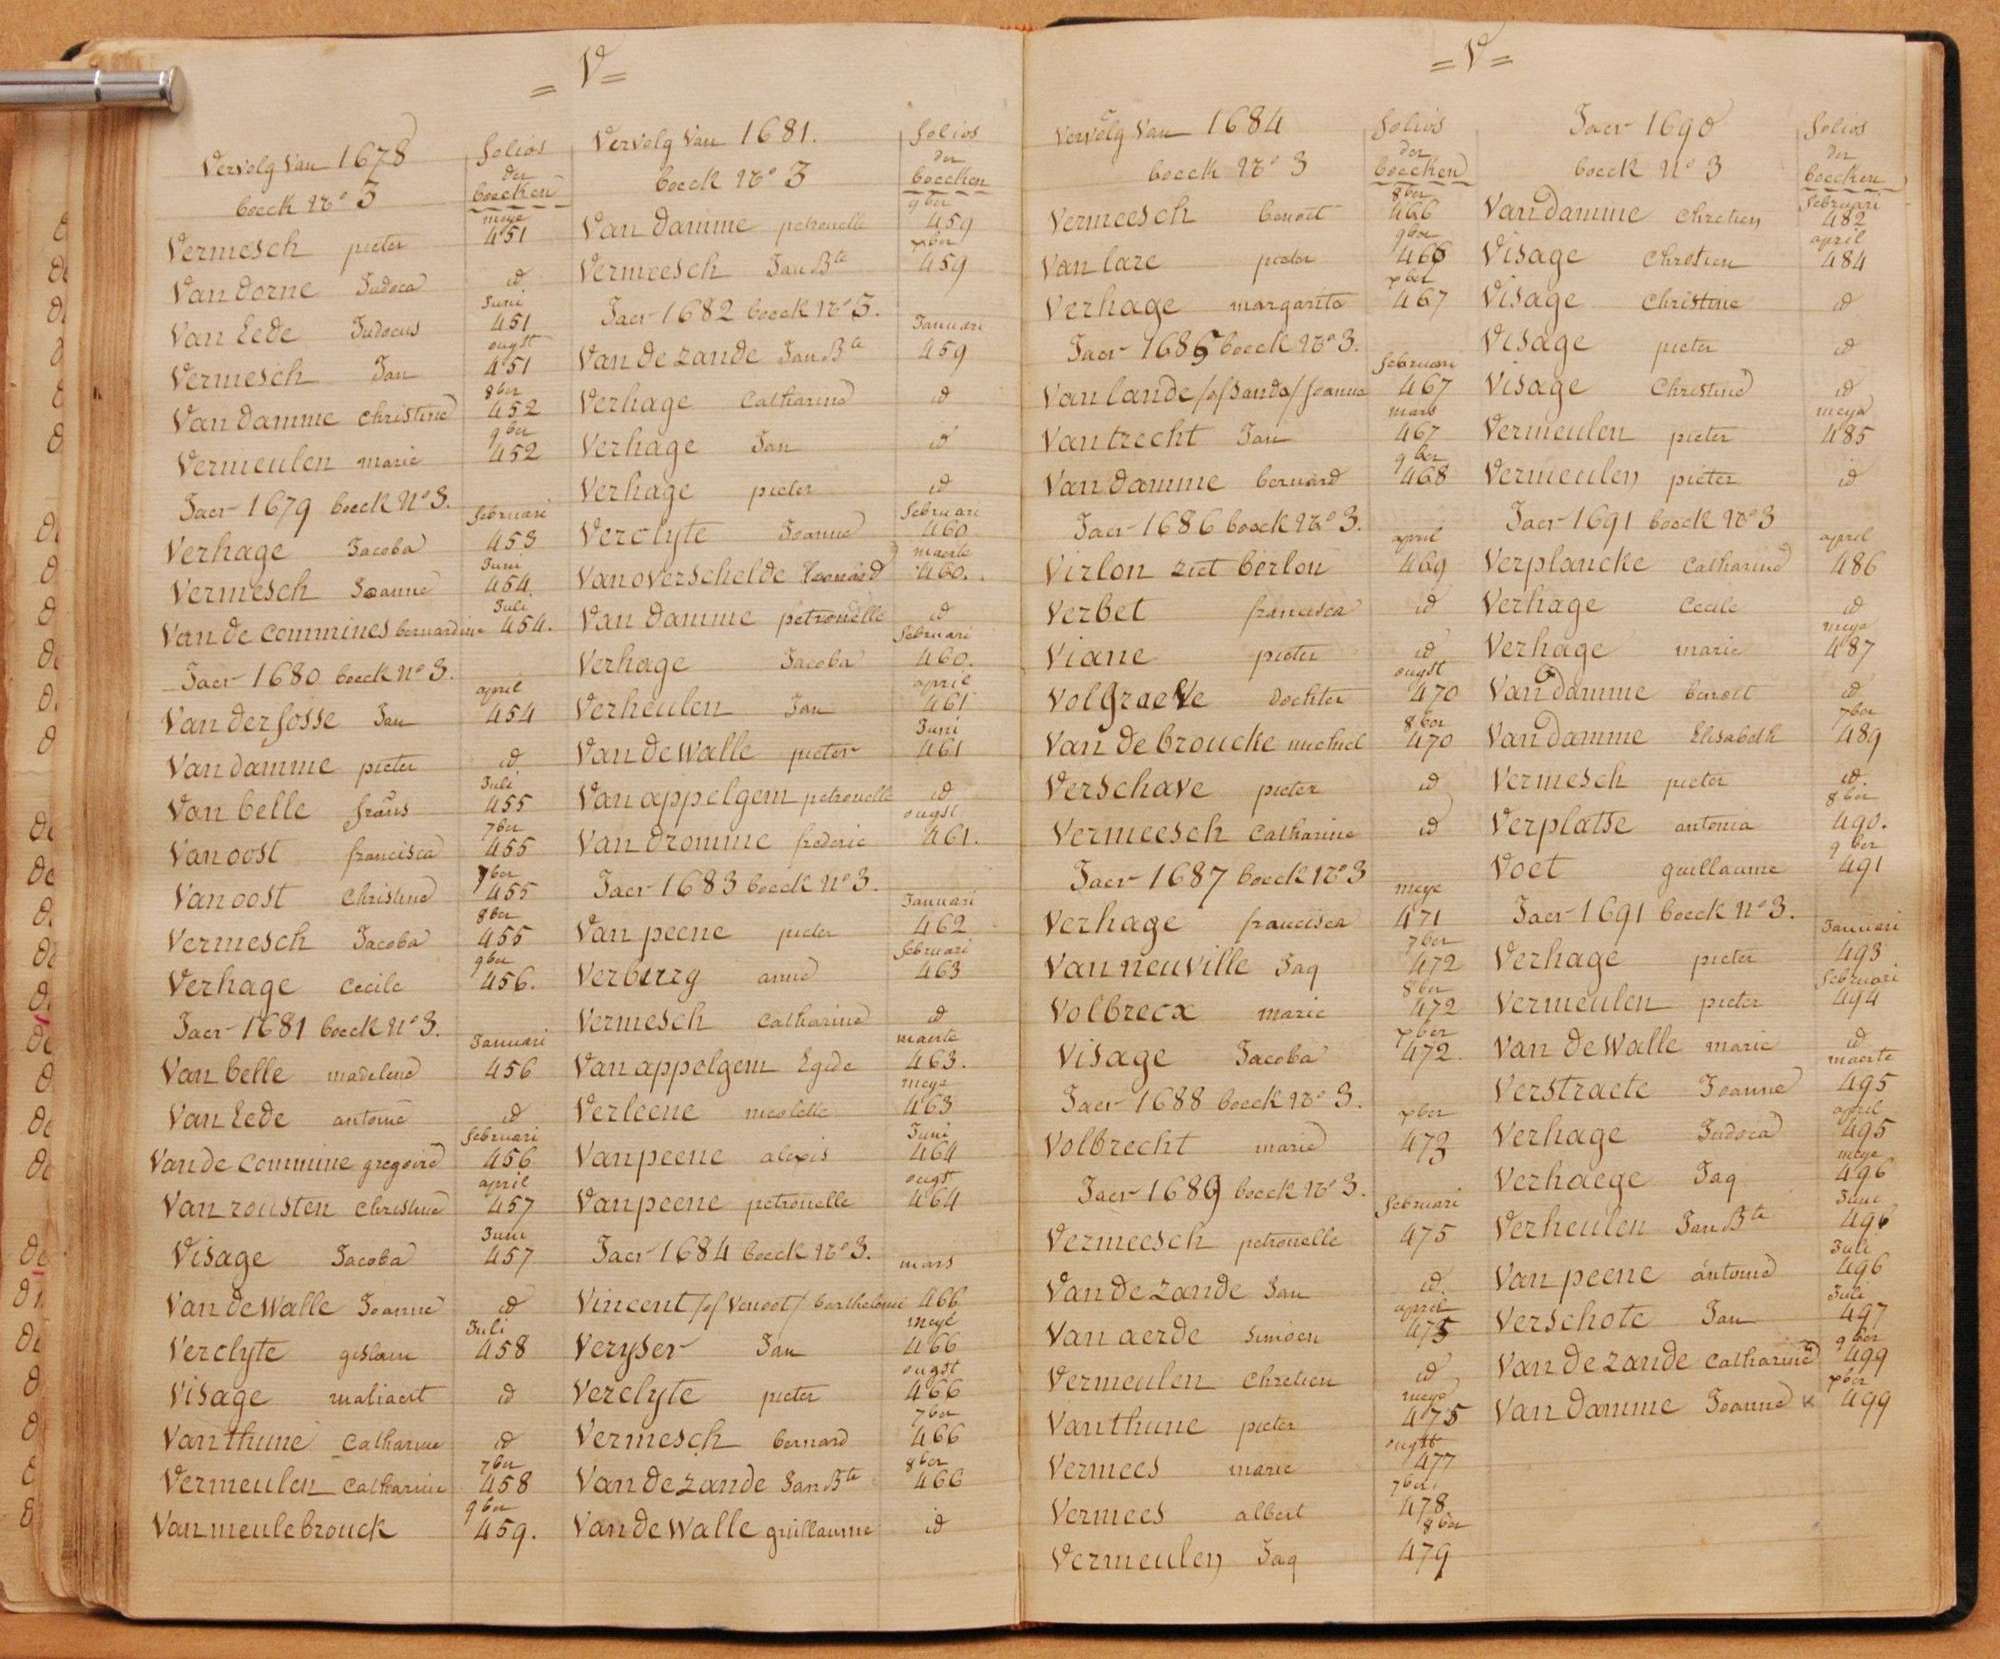 = V =
Vervolg Van 1678
boeck No 3
folios
der
boecken
Vermesch pieter meye 451
Van dorne Judoca id
Van Eede Judocus Juni 451
Vermesch Jan ougst 451
Van damme Christine 8ber 452
Vermeulen marie 9ber 452
Jaer 1679 boeck No 3.
Verhage Jacoba februari 453
Vermesch Joanne Juni 454
Van de commines bernardine Juli 454.
Jaer 1680 boeck No 3.
Van der fosse Jan april 454
Van damme pieter id
Van belle frans Juli 455
Van oost francisca 7ber 455
Van oost Christine 7ber 455
Vermesch Jacoba 8ber 455
Verhage Cecile 9ber 456.
Jaer 1681 boeck No 3.
Van belle madelene Januari 456
Van Eede antoine id
Van de commine gregoire februari 456
Van rousten Christine april 457
Visage Jacoba Juni 457
Van de Walle Joanne id
Verclyte gislain Juli 458
Visage maliaert id
Van thune Catharine id
Vermeulen Catharine 7ber 458
Van meulebrouck 9ber 459.
Vervolg Van 1681.
boeck No 3
folios
der
boecken
Van Damme petronelle 9ber 459
Vermeesch Jan Bte xber 459
Jaer 1682 boeck No 3.
Van de zande Jan Bte Januari 459
Verhage Catharine id
Verhage Jan id
Verhage pieter id
Verclyte Joanne februari 460
Van overschelde Leonard maerte 460.
Van Damme petronelle id
Verhage Jacoba februari 460.
Verheulen Jan april 461
Van de Walle pieter Juni 461
Van appelgem petronelle id
Van dromme frederic ougst 461.
Jaer 1683 boeck No 3.
Van peene pieter Januari 462
Verburg anne februari 463
Vermesch Catharine id
Van appelgem Egide maerte 463.
Verleene nicolette meye 463
Van peene alexis Juni 464
Van peene petronelle ougst 464
Jaer 1684 boeck No 3.
Vincent /of Venoot/ barthelomé mars 466
Veryser Jan meye 466
Verclyte pieter ougst 466
Vermesch bernard 7ber 466
Van de zande Jan Bte 8ber 466
Van de Walle guillaume id
= V =
Vervolg Van 1684
boeck No 3
folios
der
boecken
Vermeesch benoit 8ber 466
Van lare pieter 9ber 466
Verhage margarite xber 467
Jaer 1685 boeck No 3.
Van lande /of Sande/ Joanna februari 467
Van trecht Jan mars 467
Van Damme bernard 9ber 468
Jaer 1686 boeck No 3.
Virlon ziet birlon april 469
Verbet francisca id
Viane pieter id
Volgraeve dochter ougst 470
Van de broucke michiel 8ber 470
Verschave pieter id
Vermeesch Catharine id
Jaer 1687 boeck No 3
Verhage francisca meye 471
Van neuville Jaq 7ber 472
Volbrecx marie 8ber 472
Visage Jacoba xber 472.
Jaer 1688 boeck No 3.
Volbrecht marie xber 473
Jaer 1689 boeck No 3.
Vermeesch petronelle februari 475
Van de zande Jan id.
Van aerde Simoen april 475
Vermeulen Chretien id
Van thune pieter meye 475
Vermees marie ougst 477
Vermees albert 7ber 478
Vermeulen Jaq 8ber 479
Jaer 1690
boeck No 3
folios
der
boecken
Van damme Chretien februari 482
Visage Chretien april 484
Visage Christine id
Visage pieter id
Visage Christine id
Vermeulen pieter meye 485
Vermeulen pieter id
Jaer 1691 boeck No 3
Verplancke Catharine april 486
Verhage Cecile id
Verhage marie meye 487
Van damme benoit id
Van damme Elisabeth 7ber 489
Vermesch pieter id.
Verplatse antonia 8ber 490.
Voet guillaume 9ber 491
Jaer 1691 boeck No 3.
Verhage pieter Januari 493
Vermeulen pieter februari 494
Van de Walle marie id
Verstraete Joanne maerte 495
Verhage Judoca april 495
Verhaege Jaq meye 496
Verheulen Jan Bte Juni 496
Van peene antoine Juli 496
Verschote Jan Juli 497
Van de zande Catharine 9ber 499
Van Damme Joanne x xber 499